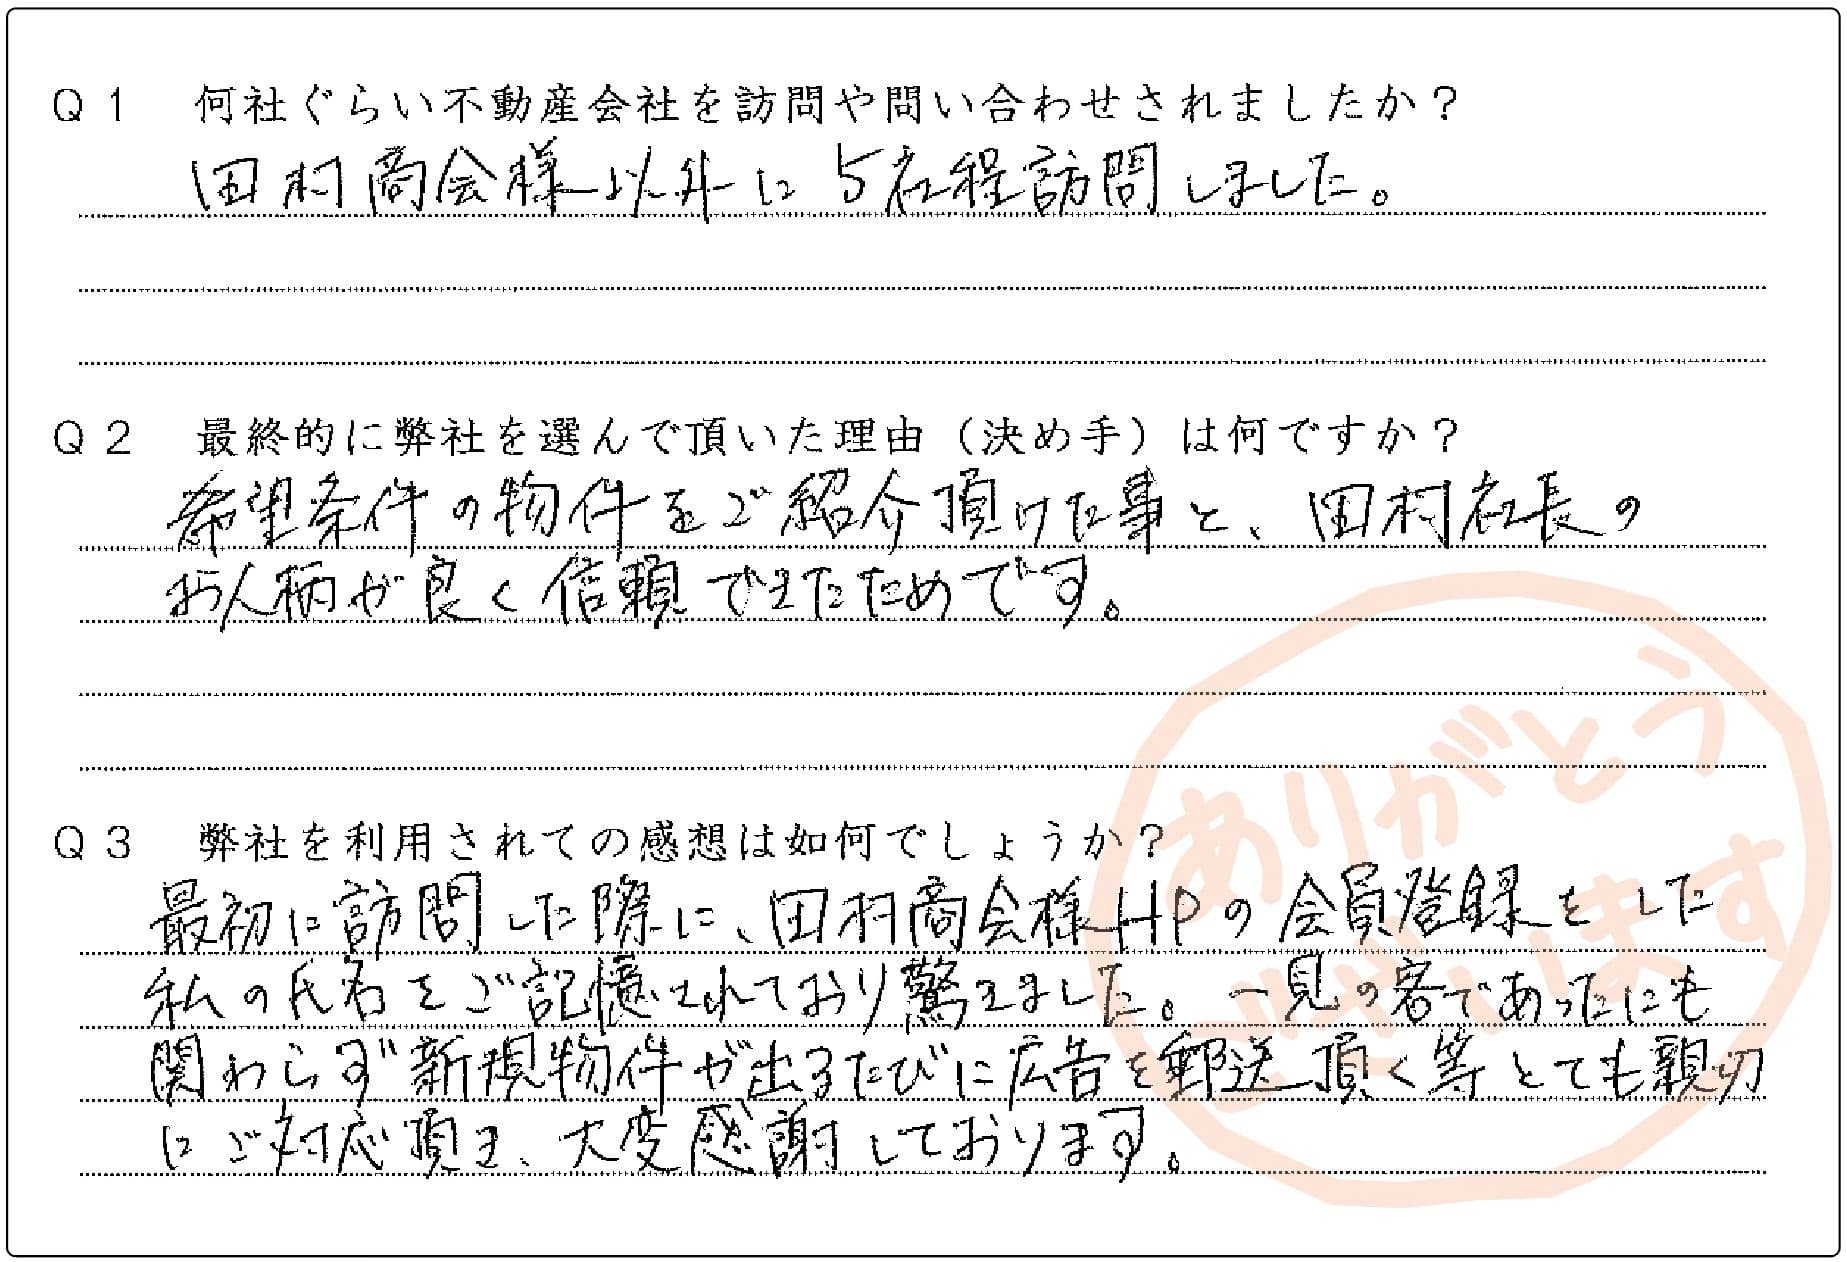 Q1 何社ぐらい不動産会社を訪問や問い合わせされましたか?
田村商会様以外に5社程訪問しました。
Q2 最終的に弊社を選んで頂いた理由(決め手)は何ですか?
希望条件の物件をご紹介頂けた事と、田村社長の
お人柄が良く信頼できたためです。
Q3 弊社を利用されての感想は如何でしょうか?
最初に訪問した際に、田村商会様HPの会員登録をした
私の氏名をご記憶されており驚きました。一見の客であったにも
関わらず新規物件が出るたびに広告を郵送頂く等とても親切
にご対応頂き、大変感謝しております。
ありがとう
ございます